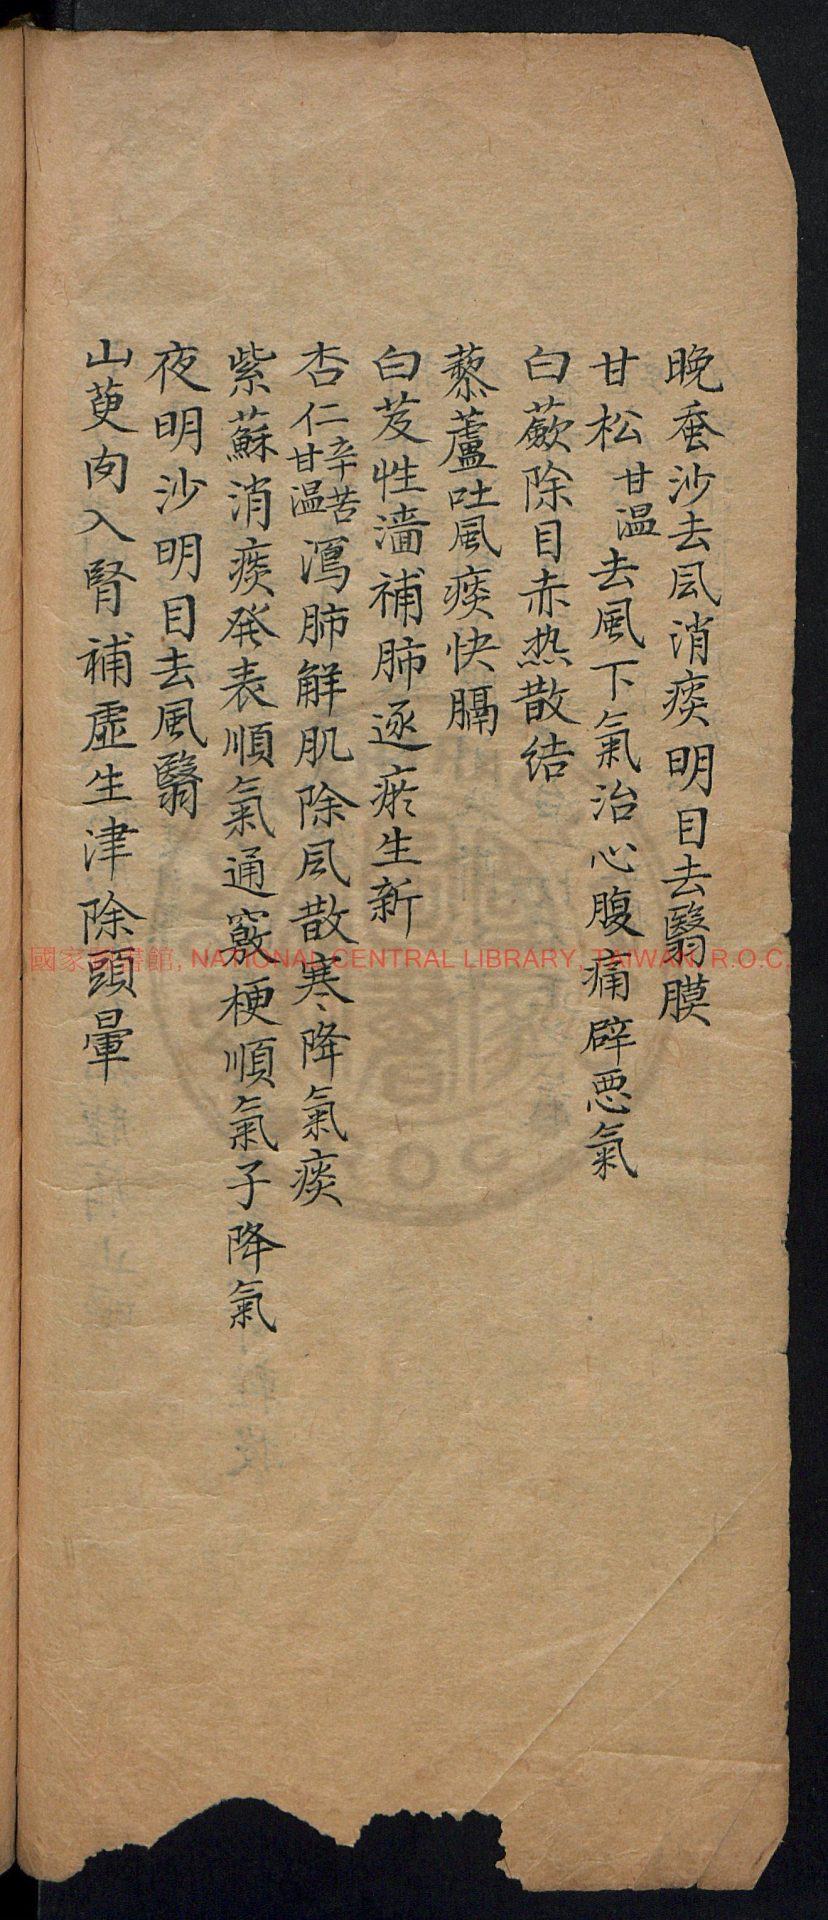 晚蚕沙去凨消痰明目去翳膜
甘松甘温去風下氣治心腹痛辟恶氣
白蔹除目赤热散结
藜蘆吐風痰快膈
白芨性濇補肺逐瘀生新
杏仁辛苦甘温瀉肺解肌除凨散寒降氣痰
紫蘇消痰発表順氣通竅梗順氣子降氣
夜明沙明目去風翳
山萸肉入腎補虛生津除頭暈
國家圖書館, NATIONAL CENTRAL LIBRARY, TAIWAN, R.O.C.